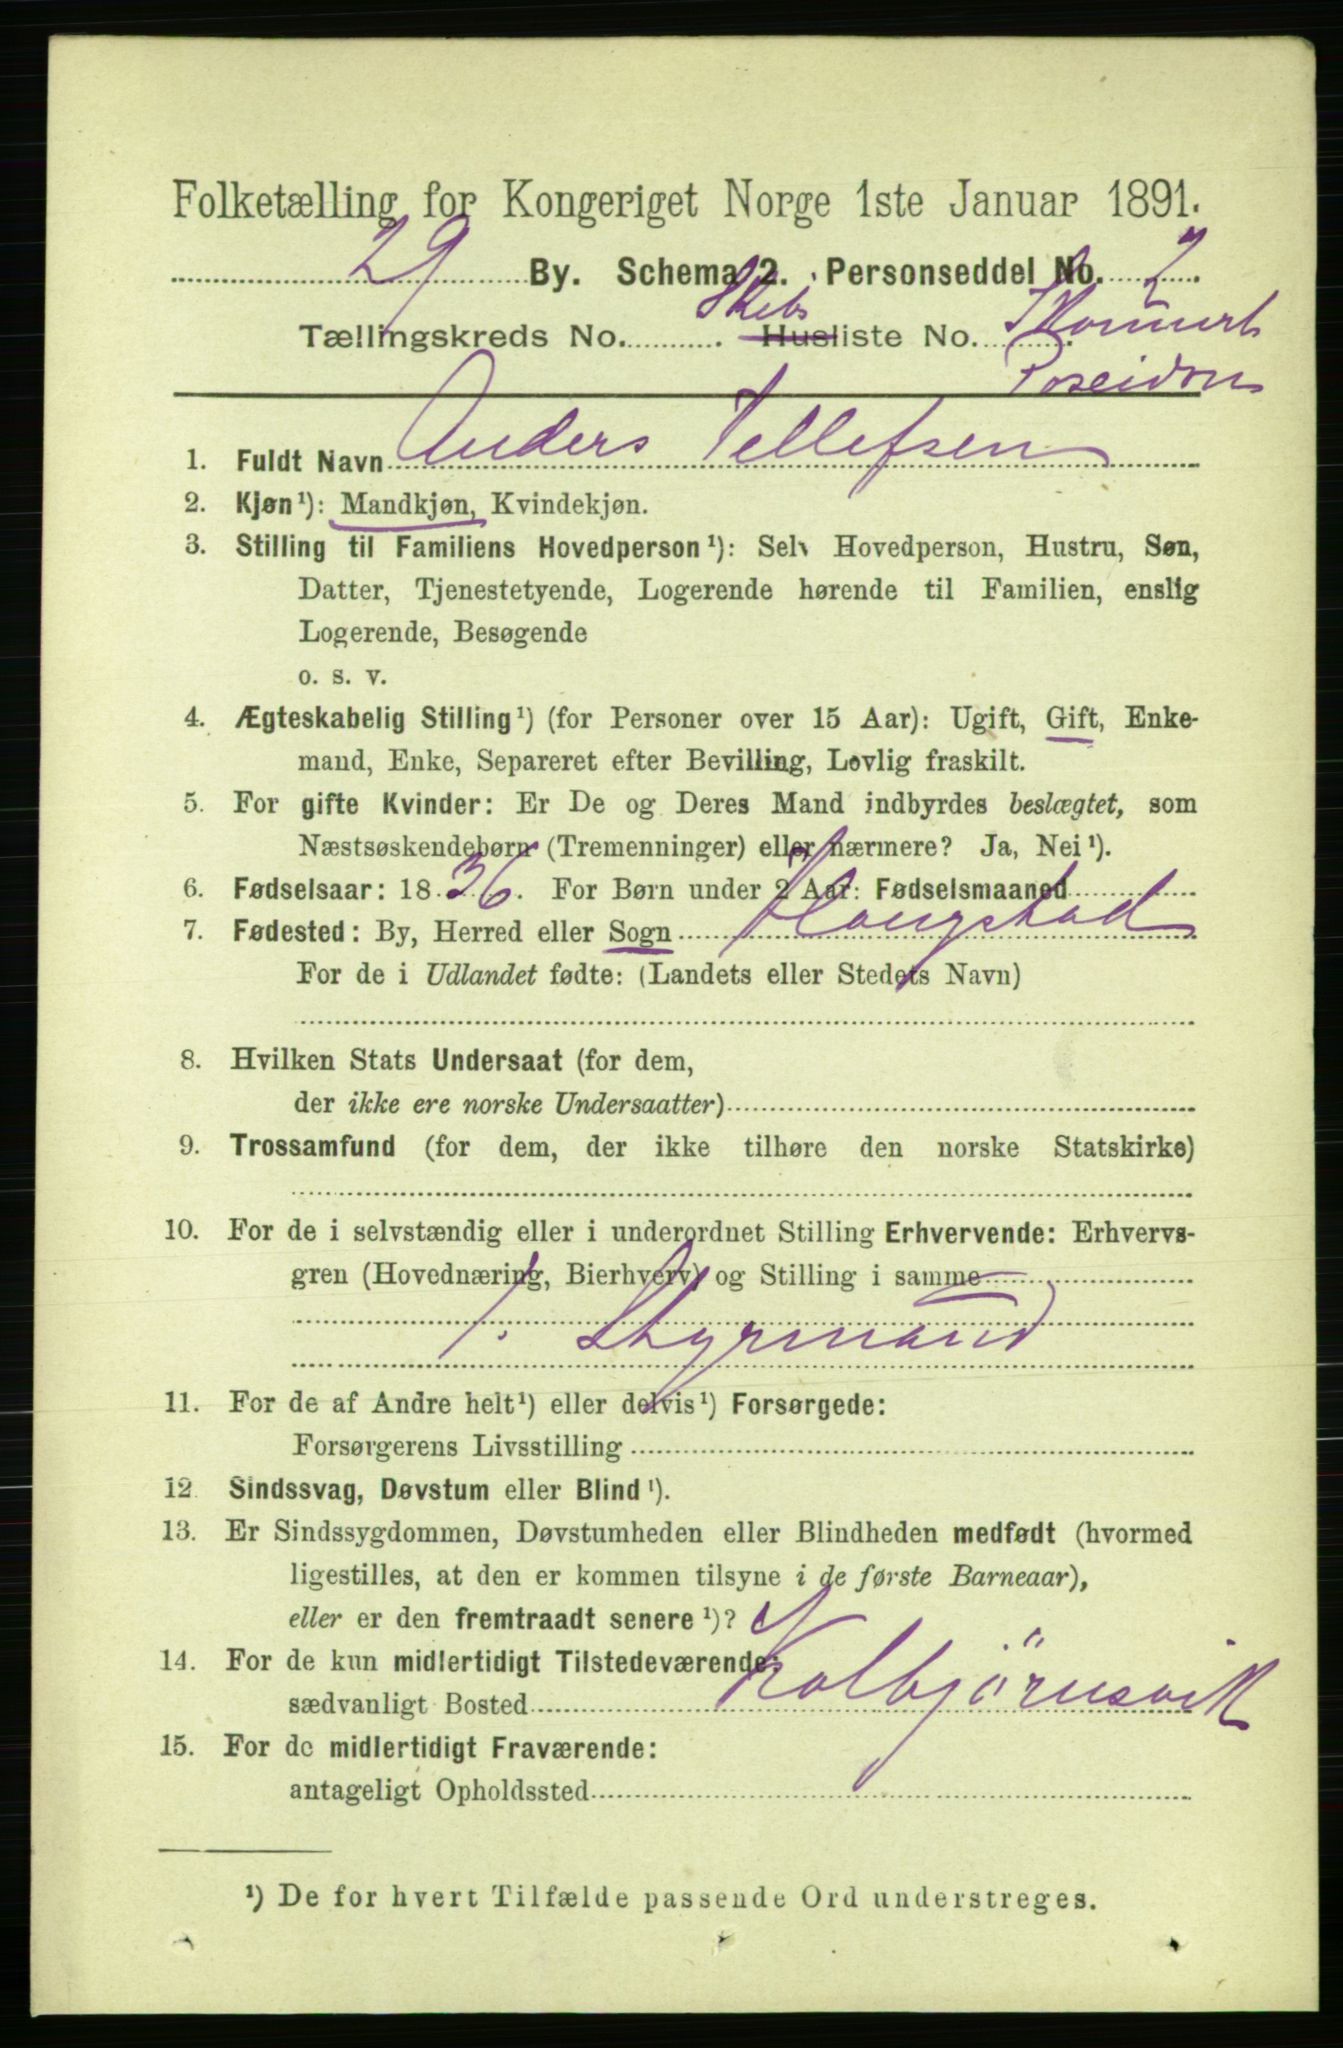 Folketælling for Kongeriget Norge 1ste Januar 1891.
29 By. Schema 2. Personseddel No. 2
Tællingskreds No. Skibs Husliste No. Skonnert
Poseidon
1. Fuldt Navn Anders Tellefsen
2. Kjøn¹): Mandkjøn, Kvindekjøn.
3. Stilling til Familiens Hovedperson¹): Selv Hovedperson, Hustru, Søn,
Datter, Tjenestetyende, Logerende hørende til Familien, enslig
Logerende, Besøgende
o. s. v.
4. Ægteskabelig Stilling¹) (for Personer over 15 Aar): Ugift, Gift, Enke-
mand, Enke, Separeret efter Bevilling, Lovlig fraskilt.
5. For gifte Kvinder: Er De og Deres Mand indbyrdes beslægtet, som
Næstsøskendebørn (Tremenninger) eller nærmere? Ja, Nei¹).
6. Fødselsaar: 1836. For Børn under 2 Aar: Fødselsmaaned
7. Fødested: By, Herred eller Sogn
For de i Udlandet fødte: (Landets eller Stedets Navn)
8. Hvilken Stats Undersaat (for dem,
der ikke ere norske Undersaatter)
9. Trossamfund (for dem, der ikke tilhøre den norske Statskirke)
10. For de i selvstændig eller i underordnet Stilling Erhvervende: Erhvervs-
gren (Hovednæring, Bierhverv) og Stilling i samme
1. Styrmand
11. For de af Andre helt¹) eller delvis¹) Forsørgede:
Forsørgerens Livsstilling
12. Sindssvag, Døvstum eller Blind¹).
13. Er Sindssygdommen, Døvstumheden eller Blindheden medfødt (hvormed
ligestilles, at den er kommen tilsyne i de første Barneaar),
eller er den fremtraadt senere¹)?
14. For de kun midlertidigt Tilstedeværende:
sædvanligt Bosted Kolbjörnsvik
15. For de midlertidigt Fraværende:
antageligt Opholdssted
¹) De for hvert Tilfælde passende Ord understreges.